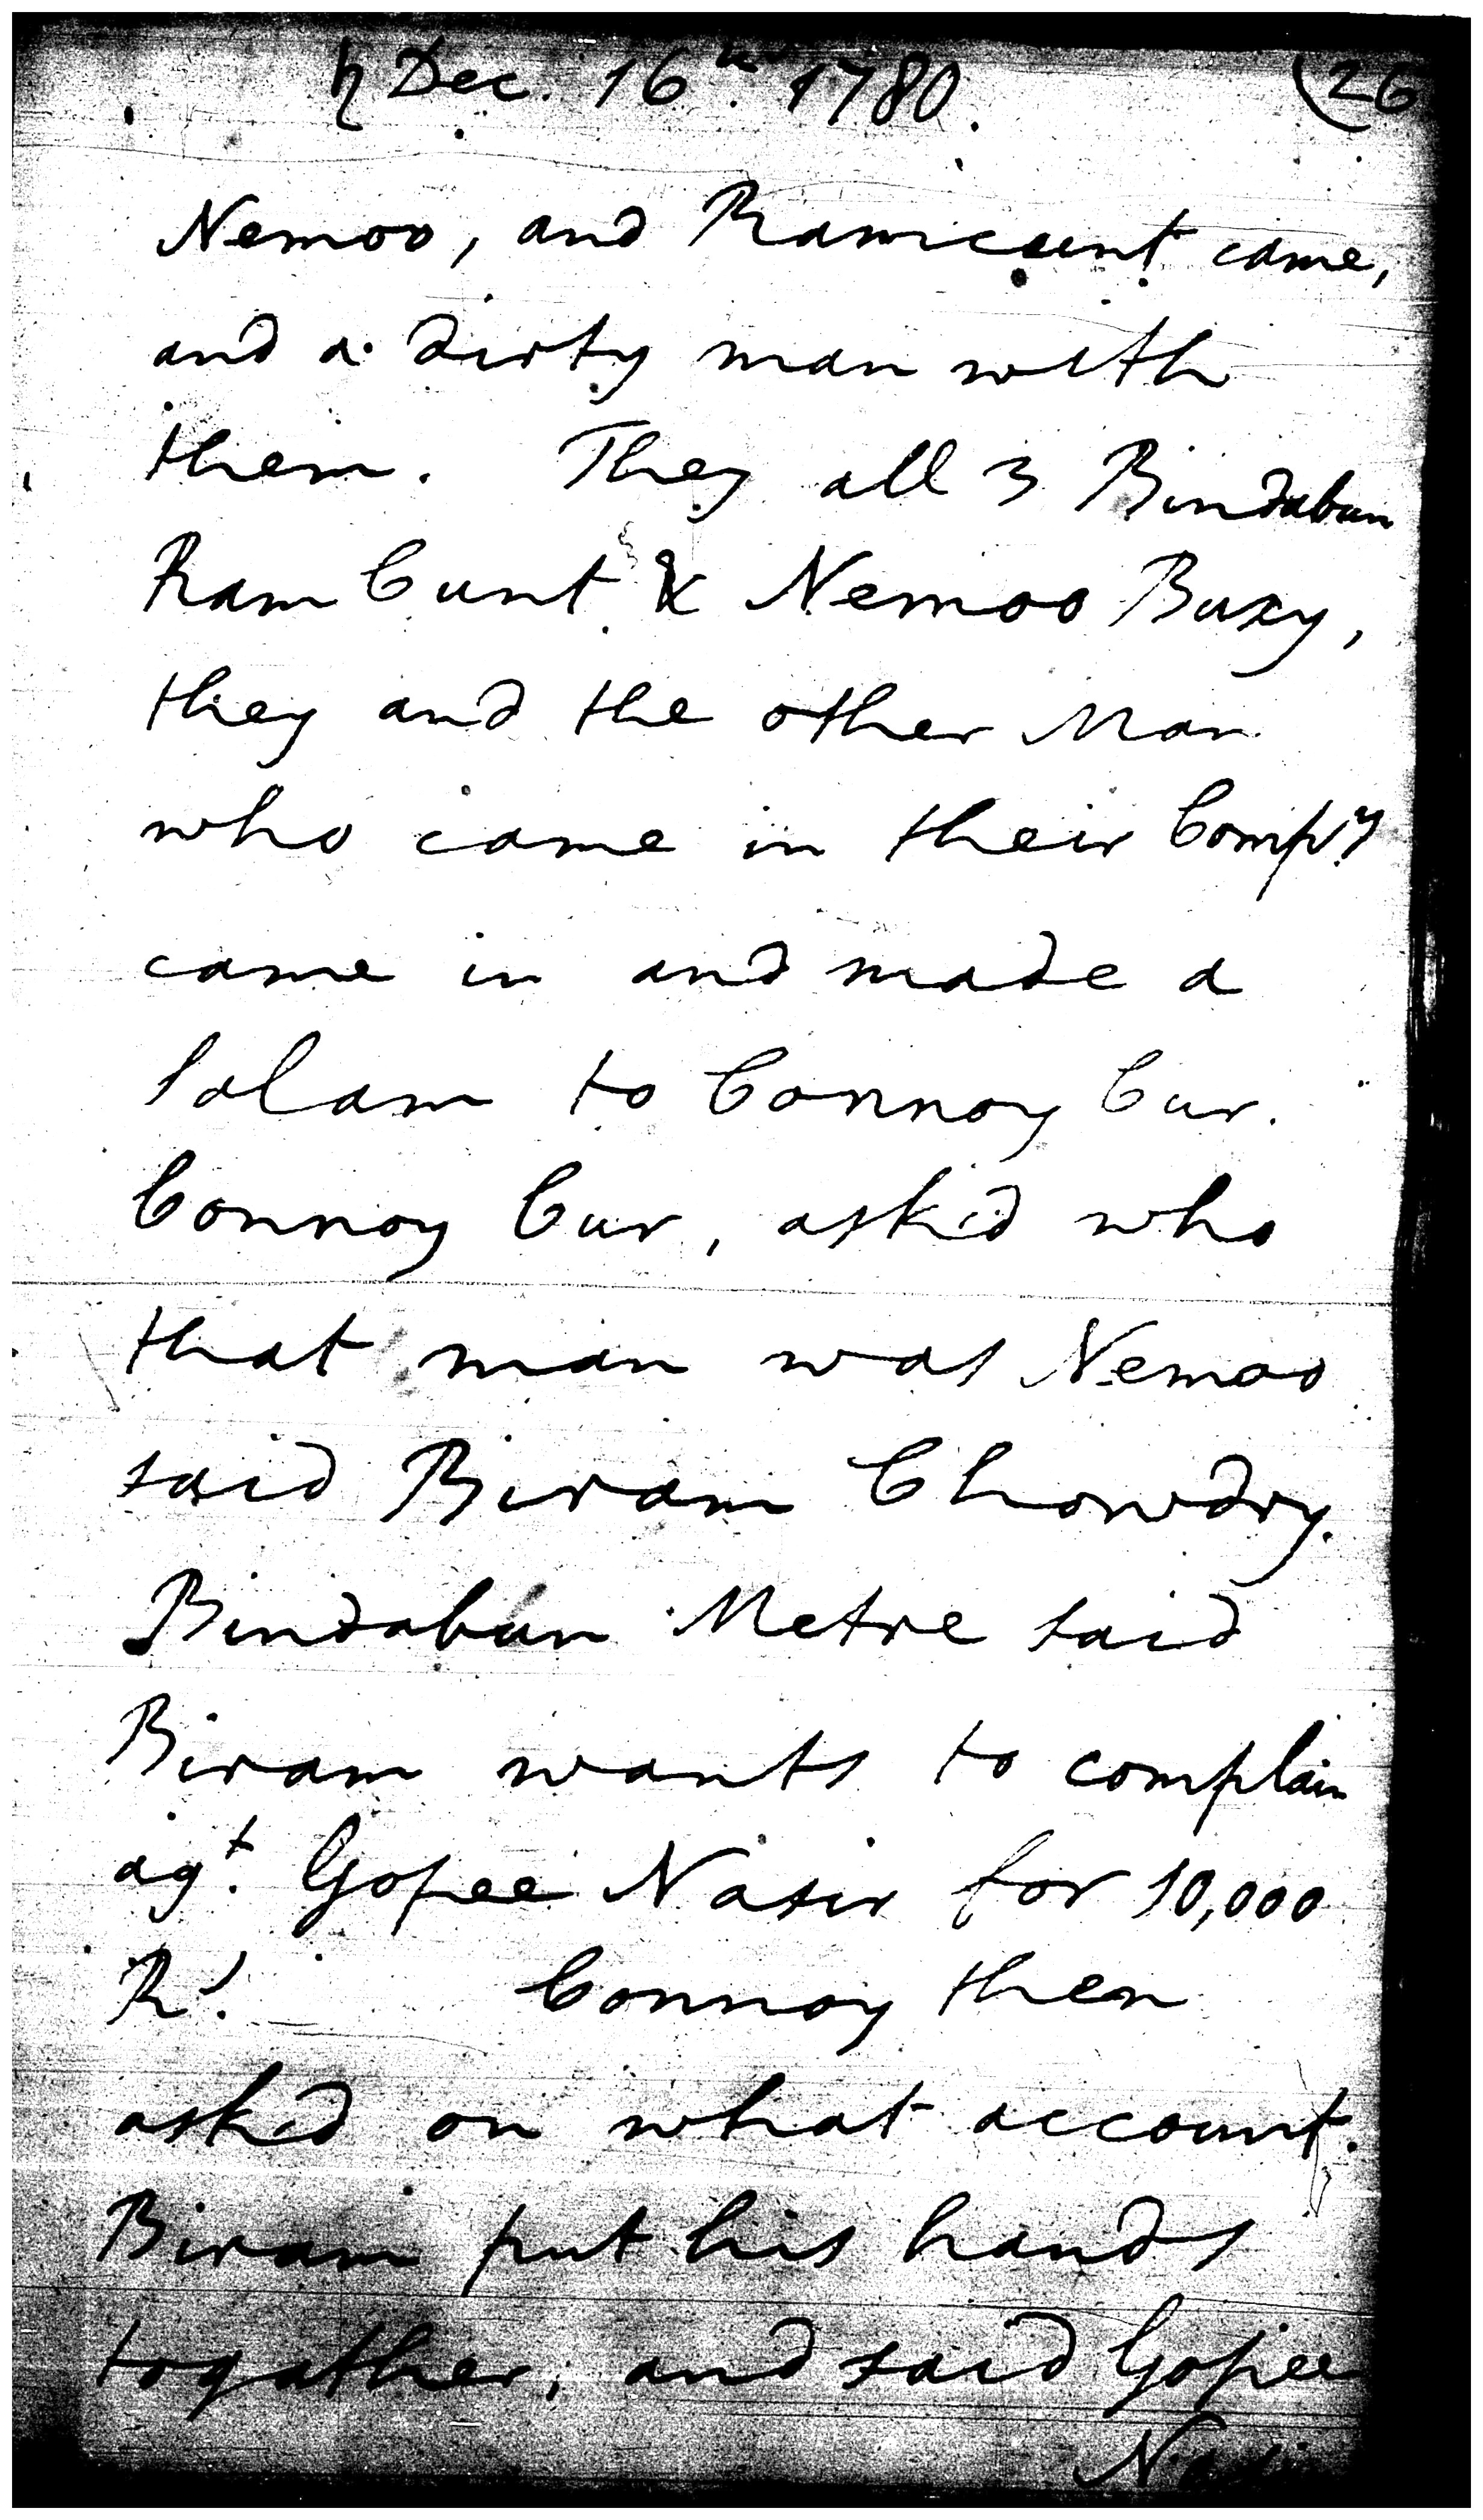 ♄ Dec. 16th 1780. (26
Nemoo, and Ramcunt came,
and a dirty man with
them. They all 3 Bindabun
Ram Cunt & Nemoo Buxy,
they and the other Man
who came in their Compy
came in and made a
Salam to Connoy Cur.
Connoy Cur, ask'd who
that man was Nemoo
said Biram Chowdry.
Bindabun Metre said
Biram wants to complain
agt. Gopee Nasir for 10,000
Rs. Connoy then
askd on what account.
Biram put his hands
togather, and said Gopee